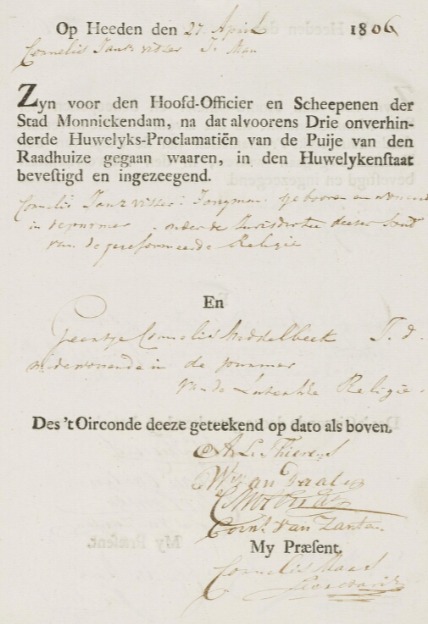 Op Heeden den 27 April 1806
Cornelis Jansz visser J. Man
Zyn voor den Hoofd-Officier en Scheepenen der
Stad Monnickendam, na dat alvoorens Drie onverhin-
derde Huwelyks-Proclamatiën van de Puije van den
Raadhuize gegaan waaren, in den Huwelykenstaat
bevestigd en ingezeegend.
Cornelis Jansz visser Jongman geboren en
in de purmer onder de Jurisdictie deeser Stad
van de gereformeerde Religie
En
Geertje Cornelis Middelbeek J. d.
in de purmer
van de Lutersche Religie
Des 't Oirconde deeze geteekend op dato als boven.
van Daalen
Corn: van Zanten
My Præsent.
Cornelis Maas